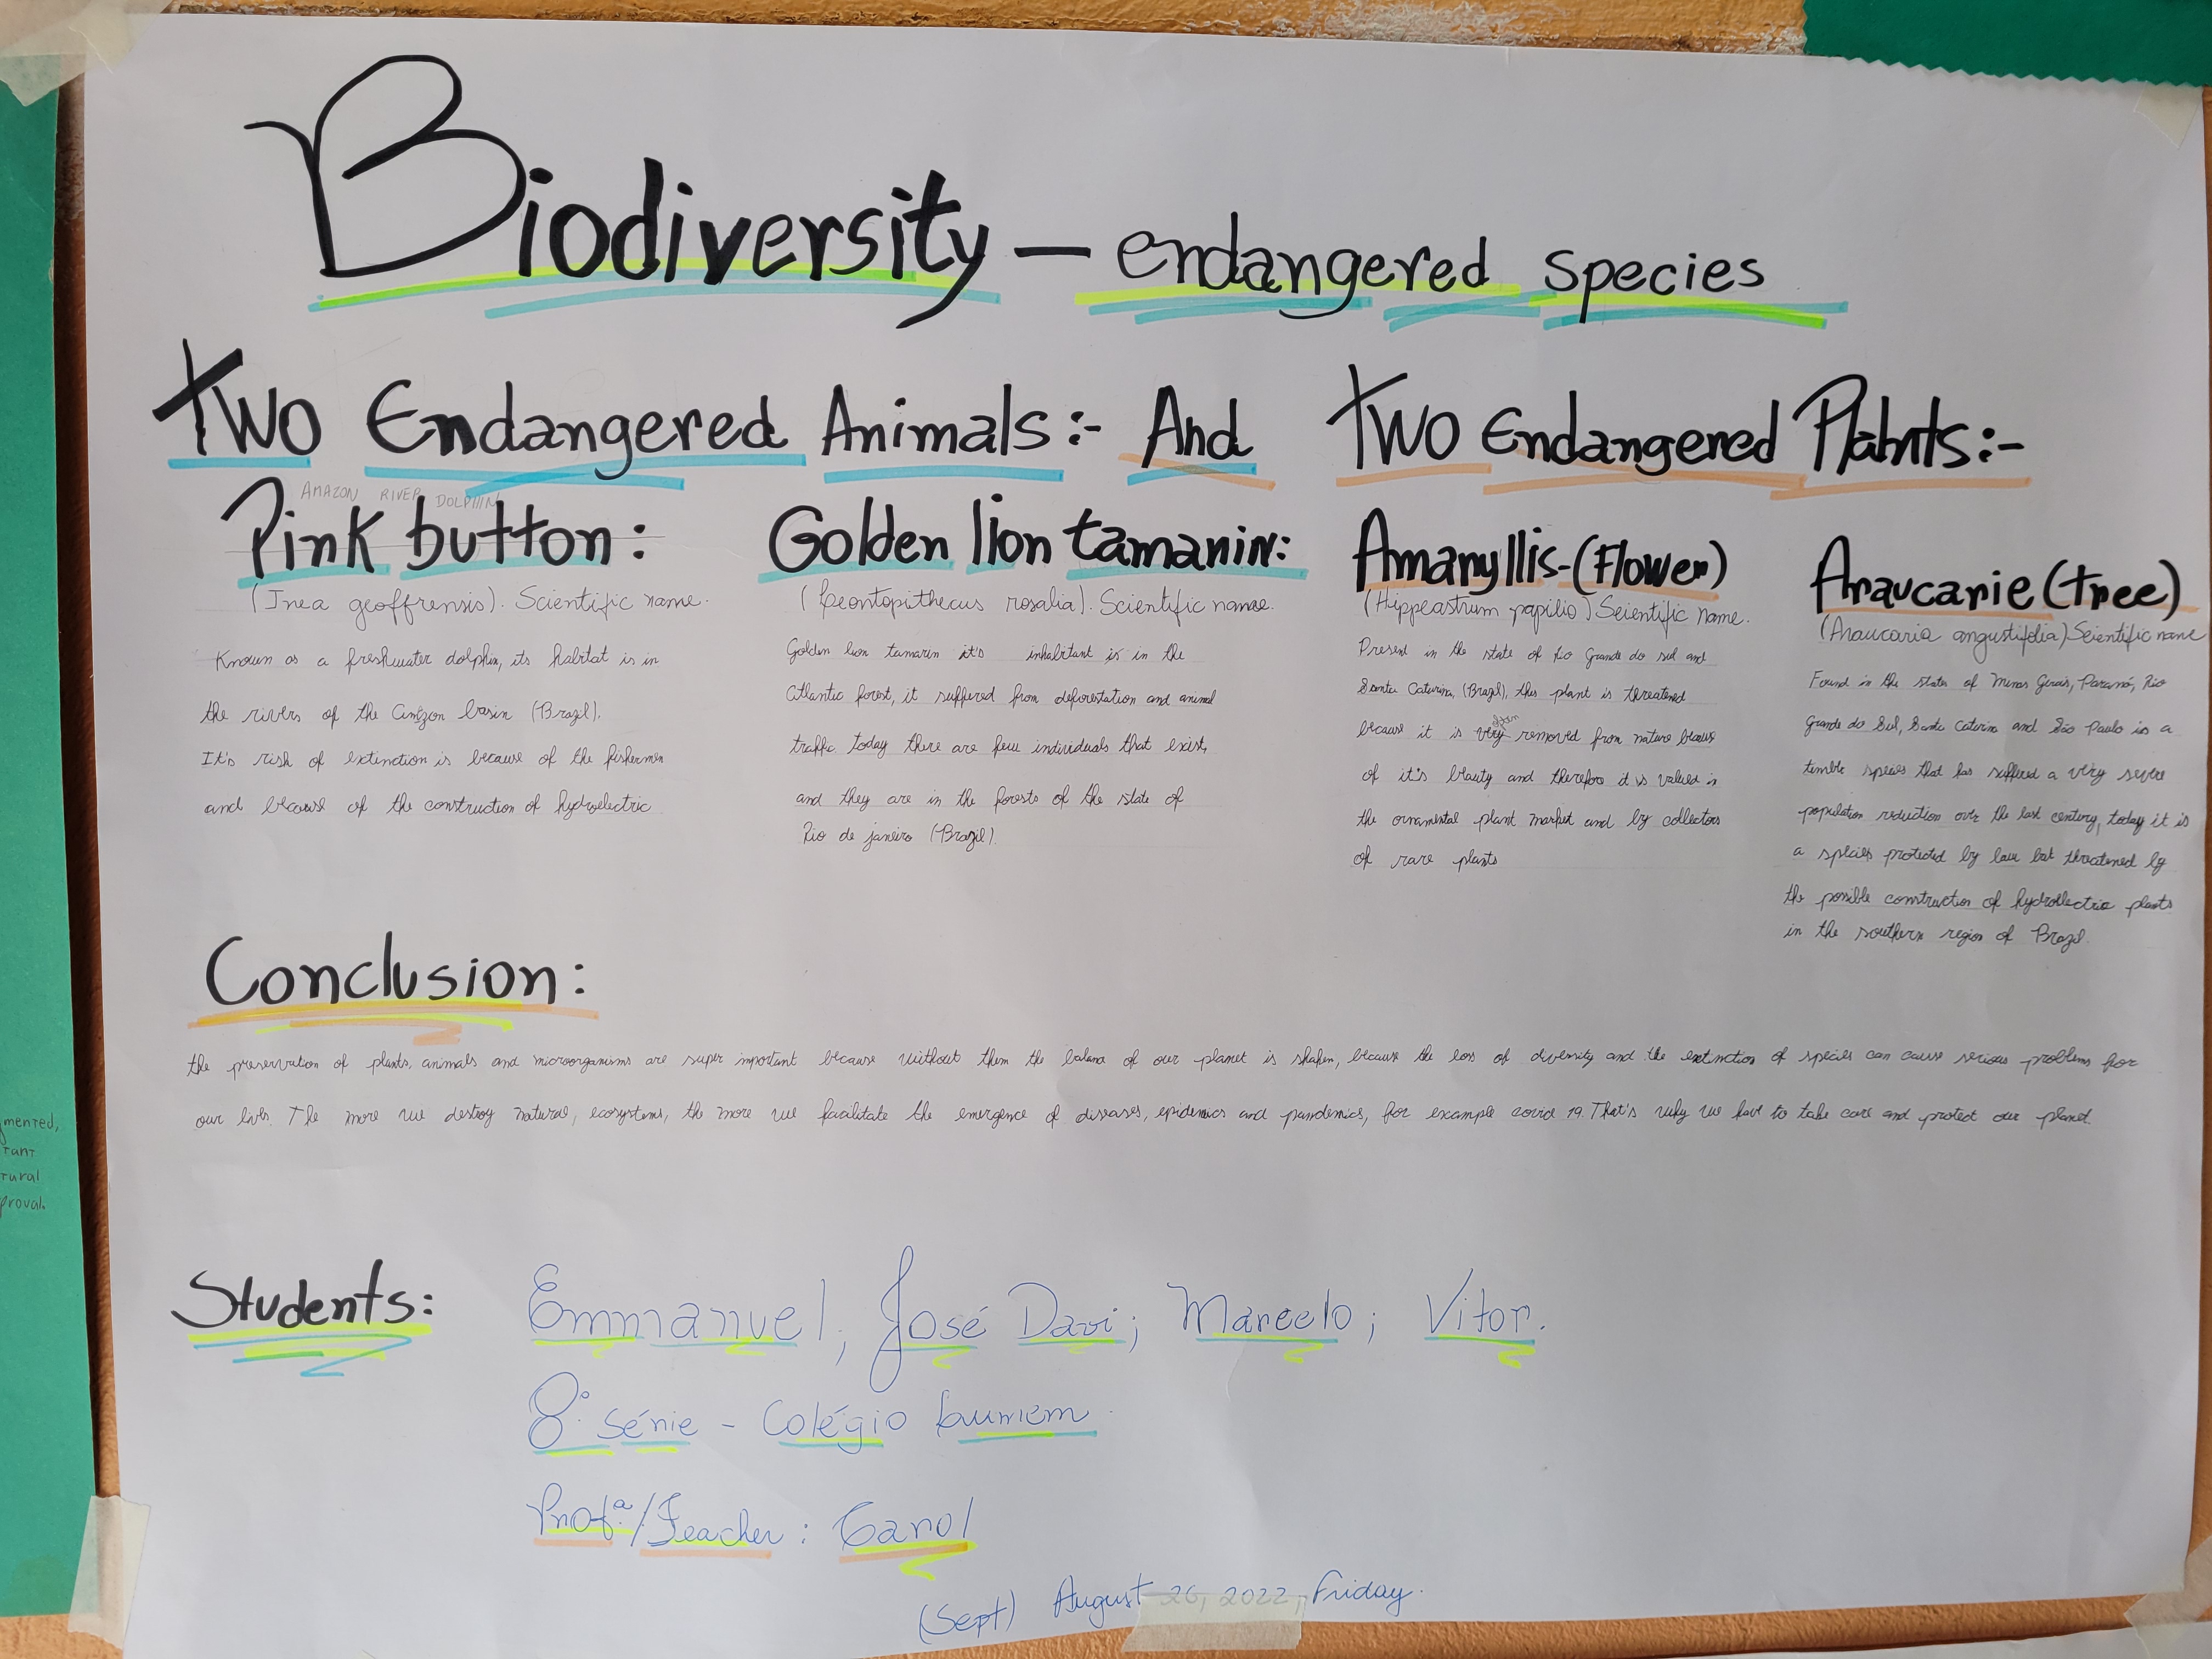 Biodiversity - endangered species
Two Endangered Animals:- And Two Endangered Plahts:-
AMAZON RIVER DOLPHIN
Pink button:
(Inea geoffrensis). Scientific name.
Known as a freshwater dolphin, its habitat is in
the rivers of the Amazon basin (Brazil).
It's risk of extinction is because of the fishermen
and because of the construction of hydroelectric.
Golden lion tamanin:
(Leontopithecus rosalia). Scientific name.
Golden lion tamarin it's inhabitant is in the
Atlantic forest, it suffered from deforestation and animal
traffic today there are few individuals that exist,
and they are in the forests of the state of
Rio de janeiro (Brazil).
Amaryllis-(Flower)
(Hippeastrum papilio) Scientific Name.
Present in the state of Rio Grande do sul and
Santa Catarina, (Brazil), this plant is threatened
often
because it is very removed from nature because
of it's beauty and therefore it is valued in
the ornamental plant market and by collectors
of rare plants
Araucarie (tree)
(Araucaria angustifolia) Scientific name
Found in the states of Minas Gerais, Paraná, Rio
Grande do Sul, Santa Catarina and São Paulo is a
species that has suffered a very severe
population reduction over the last century, today it is
a species protected by law but threatened by
the possible construction of hydroelectric plants
in the southern region of Brazil.
Conclusion:
the preservation of plants, animals and microorganisms are super important because without them the balance of our planet is shaken, because the loss of diversity and the extinction of species can cause serious problems for
our lives. The more we destroy natural, ecosystems, the more we facilitate the emergence of diseases, epidemics and pandemics, for example covid 19. That's why we have to take care and protect our planet.
Students: Emmanuel; José Davi; Marcelo; Vitor.
8º série - Colégio
Profª/Teacher: Carol
(Sept) August 26, 2022, Friday.
mented,
tant
tural
proval.